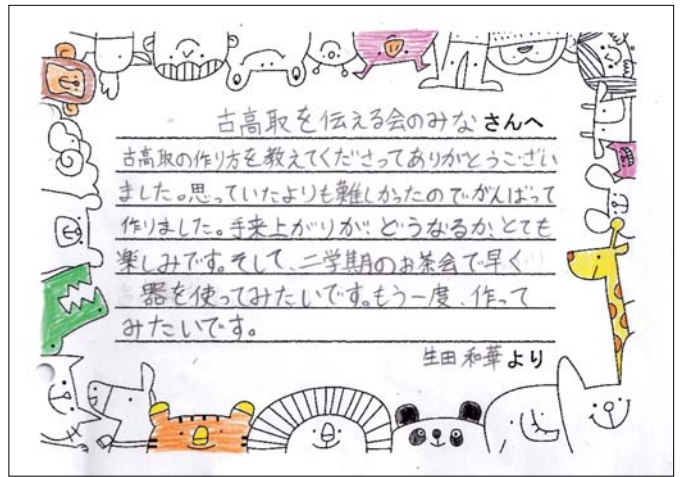 古高取を伝える会のみなさんへ
古高取の作り方を教えてくださってありがとうござい
ました。思っていたよりも難しかったのでがんばって
作りました。手来上がりが、どうなるか、とても
楽しみです。そして、二学期のお茶会で早く
器を使ってみたいです。もう一度、作って
みたいです。
生田和華より